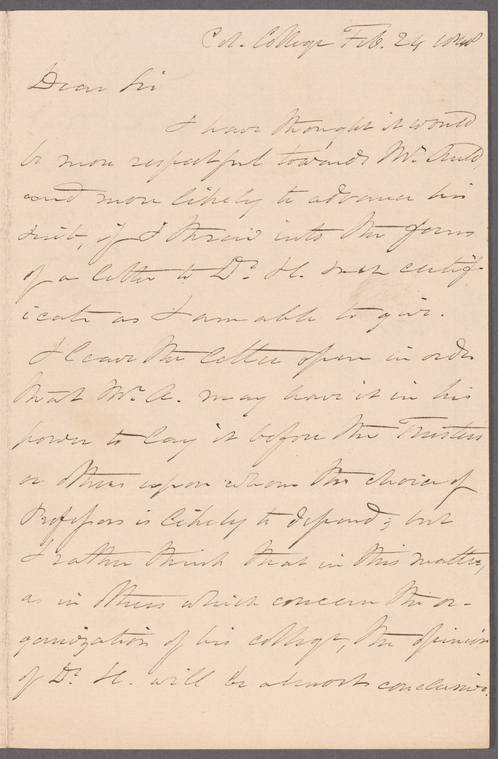 Col. College Feb. 24
Dear Sir
I have thought it would
be more respectful towards Mr.
and more likely to advance his
suit, if I threw into the form
of a letter to Dr. H. such certif-
icate as I am able to give.
I leave the letter open in order
that Mr. A. may have it in his
power to lay it before the Trustees
or others upon whom the choice of
Professors is likely to depend; but
I rather think that in this matter,
as in others which concern the or-
ganization of his college, the opinion
of Dr. H. will be almost conclusive.